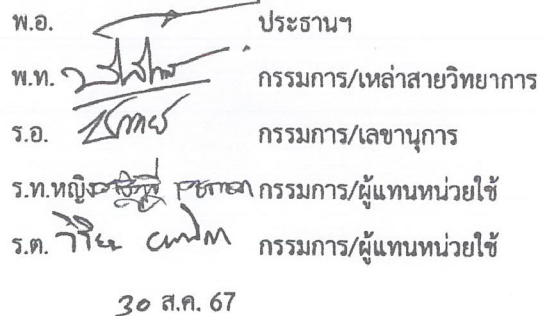 พ.อ. ประธานฯ
พ.ท. กรรมการ/เหล่าสายวิทยาการ
ร.อ. กรรมการ/เลขานุการ
ร.ท.หญิง กรรมการ/ผู้แทนหน่วยใช้
ร.ต. กรรมการ/ผู้แทนหน่วยใช้
30 ส.ค. 67